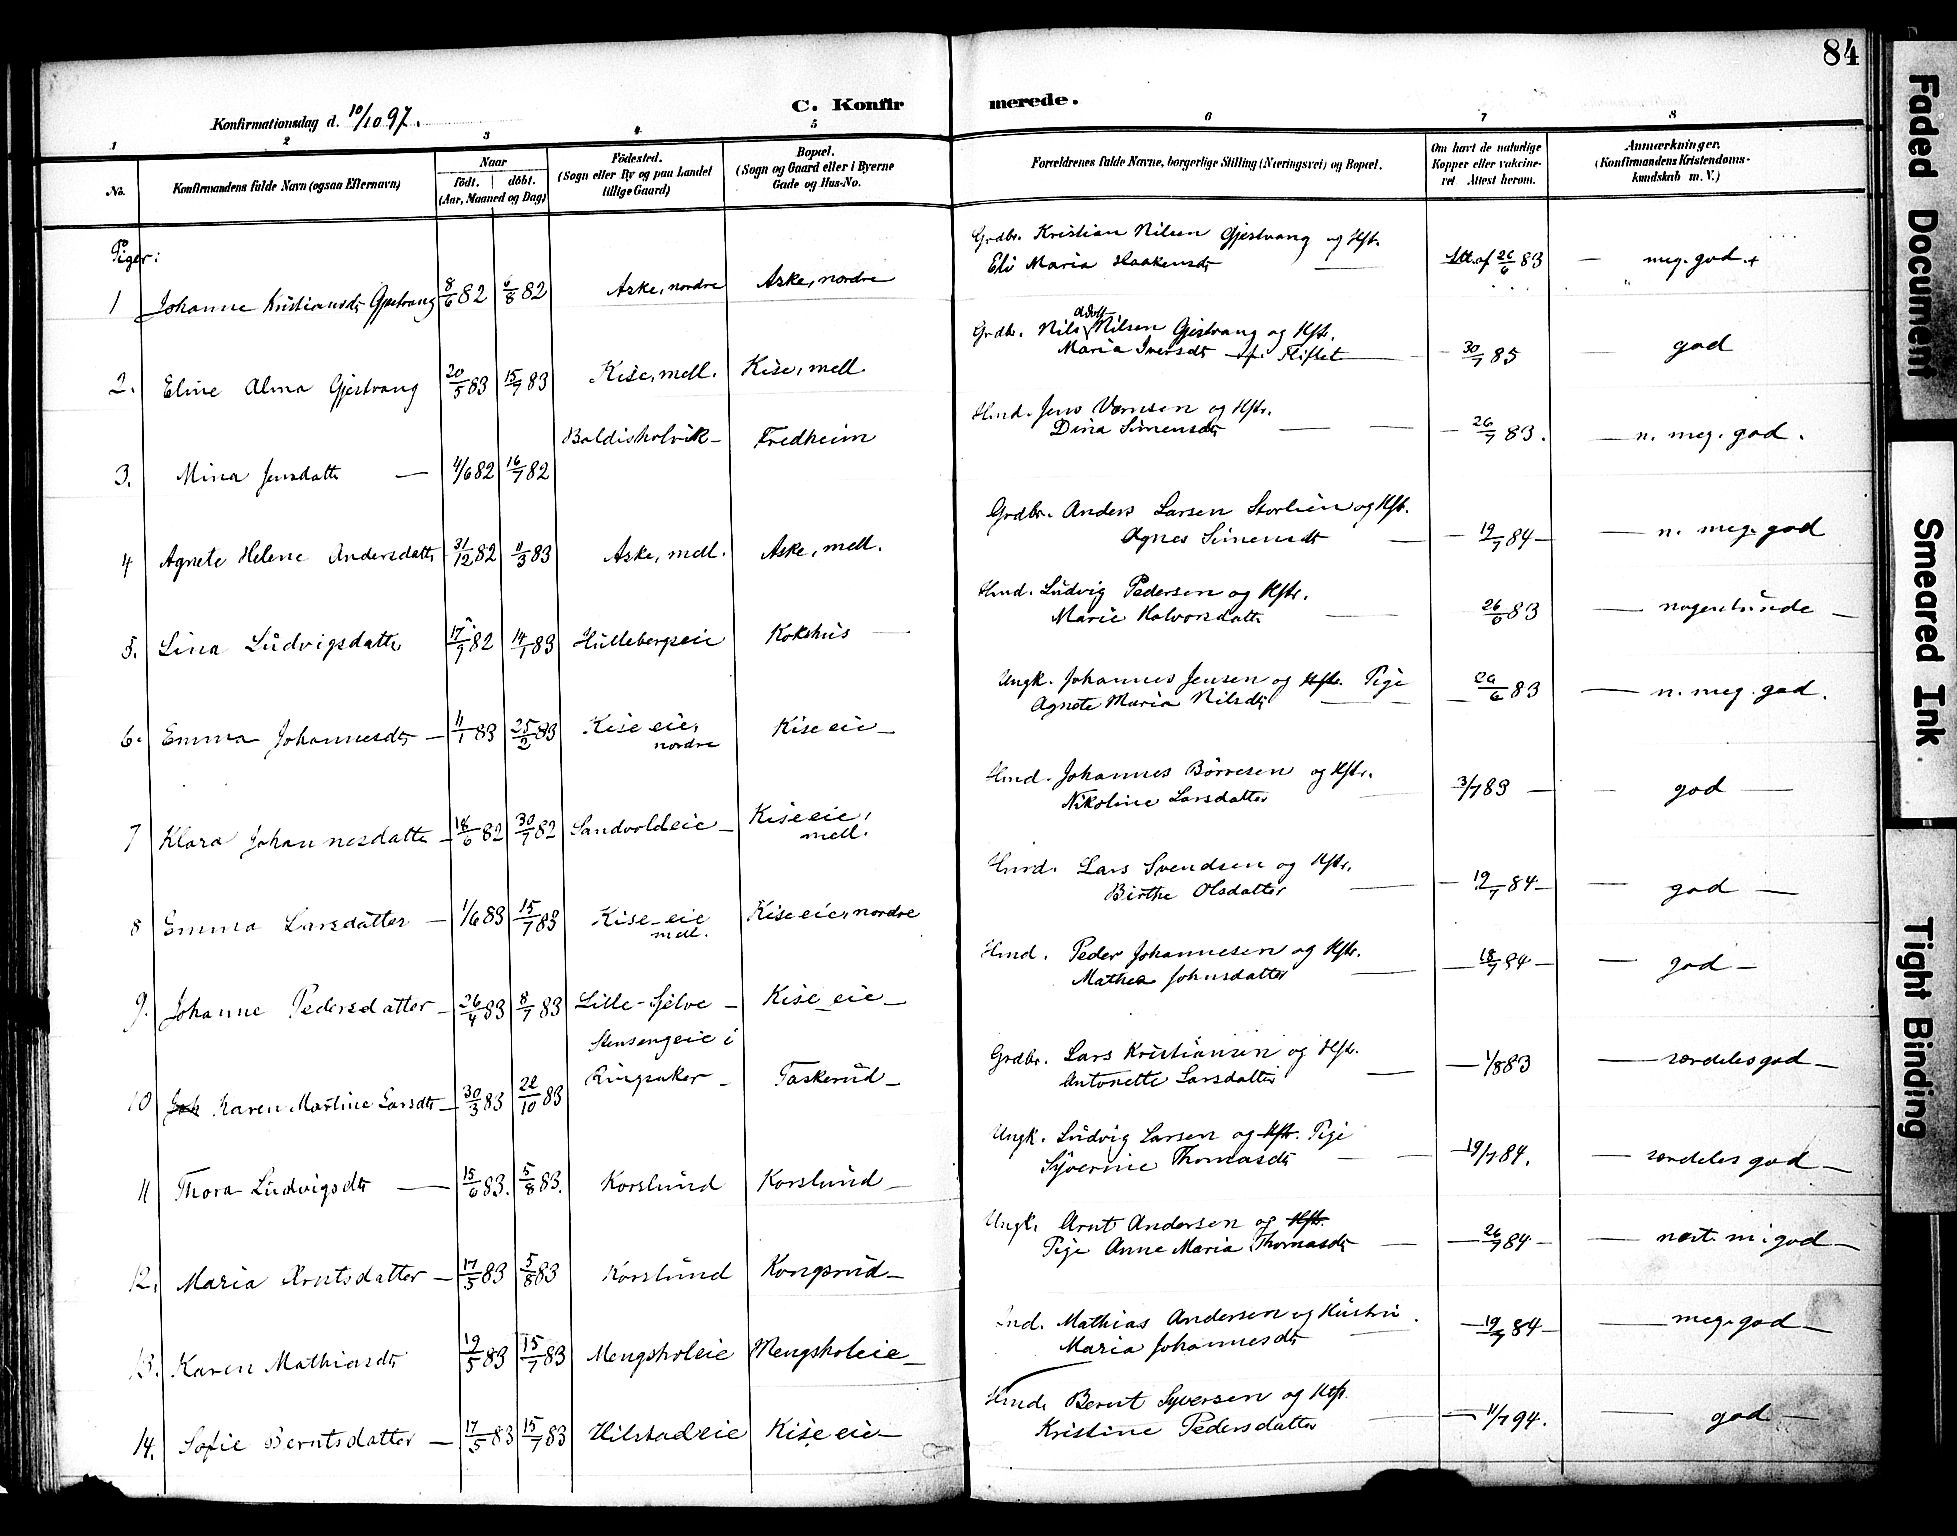 84
C. Konfirmerede.
Konfirmationsdag d. 10/10 97.
1 2 3 4 5 6 7 8
No.
Konfirmandens fulde Navn (ogsaa Efternavn)
Naar
födt. | döbt.
(Aar, Maaned og Dag)
Födested.
(Sogn eller By og paa Landet
tillige Gaard)
Bopæl.
(Sogn og Gaard eller i Byerne
Gade og Hus-No.
Forældrenes fulde Navne, borgerlige Stilling (Næringsvei) og Bopæl.
Om havt de naturlige
Kopper eller vaksine-
ret. Attest herom.
Anmærkninger.
(Konfirmandens Kristendoms-
kundskab m. V.)
Piger:
1 Johanne Kristiansdt Gjestvang 8/6 82 6/8 82 Aske, nordre Aske, nordre
Grdbr. Kristian Nilsen Gjestvang og Hst.
Eli Maria Haakensdt — Att. af 26/6 83 — meg. god +
2. Eline Alma Gjestvang 20/5 83 15/7 83 Kise, mell. Kise, mell.
Grdb. Nils Adolf Nilsen Gjestvang og Hst.
Maria Iversdt f. Fliflet — 30/7 85 — god
3. Mina Jensdatt — 4/6 82 16/7 82 Baldisholvik — Fredheim
Hmd. Jens Vernsen og Hstr.
Dina Simensdt — — 26/7 83. — n. meg. god.
4 Agnete Helene Andersdatt 31/12 82 11/3 83 Aske, mell. Aske, mell.
Grdbr. Anders Larsen Storlien og Hst.
Agnes Simensdt — 19/7 84 — n. meg. god
5. Lina Ludvigsdatt 17/9 82 14/1 83 Hullebergseie Kokshus —
Hmd. Ludvig Pedersen og Hstr.
Marie Halvorsdatt — 26/6 83 — nogenlunde —
6. Emma Johannesdt — 11/1 83 25/2 83 Kise eie, nordre Kise eie —
Ungk. Johannes Jensen og Hstr. Pige
Agnete Maria Nilsdt — 26/6 83 — n. meg. god.
7 Klara Johannesdatt — 18/6 82 30/7 82 Sandvoldeie — Kise eie, mell.
Hmd. Johannes Börresen og Hstr.
Nikoline Larsdatter — 3/7 83 — god —
8 Emma Larsdatter — 1/6 83 15/7 83 Kise-eie mell. Kise eie, nordre
Hmd. Lars Svendsen og Hstr.
Birthe Olsdatter — 19/7 84 — god —
9. Johanne Pedersdatter — 26/4 83 8/7 83 Lille-Sjelve — Kise eie —
Hmd. Peder Johannesen og Hstr.
Mathea Johnsdatter — 18/7 84 — god —
10 Joh Karen Martine Larsdt — 30/3 83 22/10 83 Stensengeie i Ringsaker — Taskerud —
Grdbr. Lars Kristiansen og Hst.
Antonette Larsdatter — 1/8 83 — særdeles god —
11 Thora Ludvigsdt — 15/6 83. 5/8 83. Korslund Korslund —
Ungk. Ludvig Larsen og Hst. Pige
Syverine Thomasdt — 19/7 84. — særdeles god —
12. Maria Arntsdatter — 17/5 83 5/8 83 Korslund Kongsrud —
Ungk. Arnt Andersen og Hstr.
Pige Anne Maria Thomasdt — 26/7 84 — næst. m. god —
13. Karen Mathiasdt 19/5 83 15/7 83 Mengsholeie Mengsholeie —
Mathias Andersen og Hustru
Maria Johannesdt — 19/7 84 — meg. god —
14. Sofie Berntsdatter — 17/5 83 15/7 83 Hilstadeie Kise eie —
Hmd. Bernt Syversen og Hst.
Kristine Pedersdatter — 11/7 94. — god —
Faded Document
Smeared Ink
Tight Binding